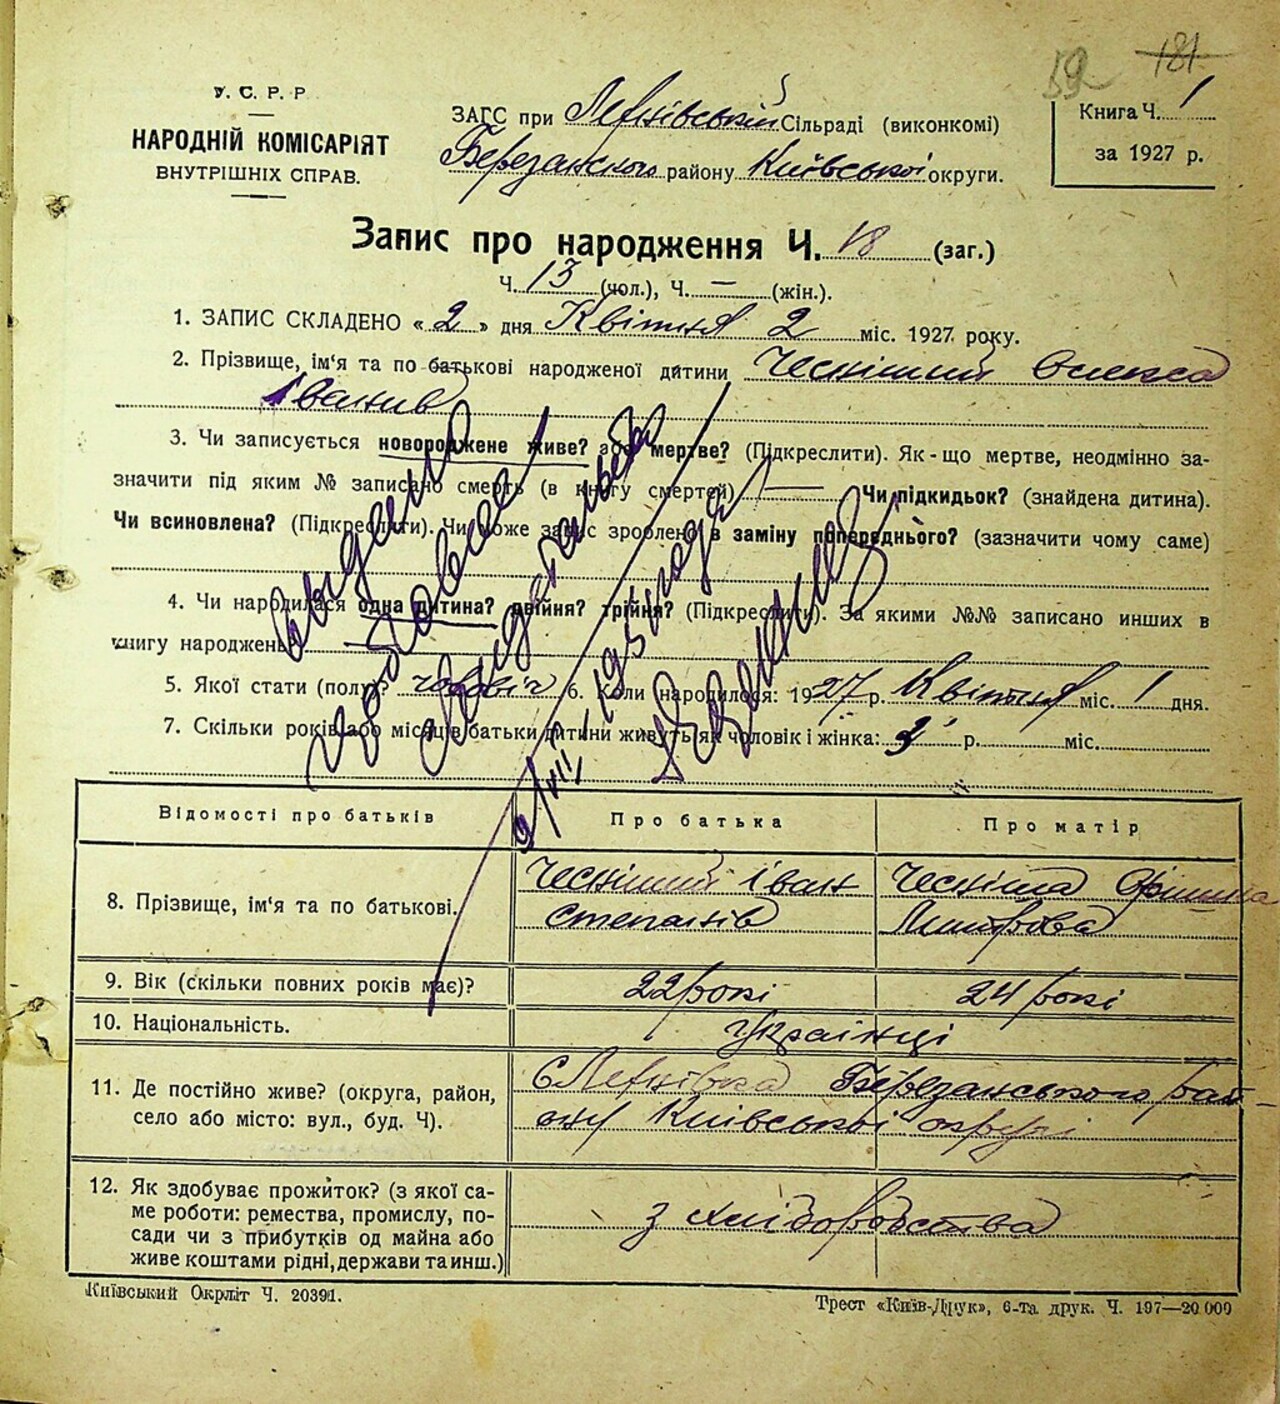 59 181
У. С. Р. Р
НАРОДНІЙ КОМІСАРІЯТ
ВНУТРІШНІХ СПРАВ.
ЗАГС при Лехнівській Сільраді (виконкомі)
Березанського району Київської округи.
Книга Ч. 1
за 1927 р.
Запис про народження Ч. 18 (заг.)
Ч. 13 (чол.), Ч. — (жін.).
1. ЗАПИС СКЛАДЕНО « 2 » дня Квітня 2 міс. 1927 року.
2. Прізвище, ім'я та по батькові народженої дитини Олекса
Іванів
3. Чи записується новороджене живе? або мертве? (Підкреслити). Як-що мертве, неодмінно за-
значити під яким № записано смерть (в книгу смертей) — Чи підкидьок? (знайдена дитина).
Чи всиновлена? (Підкреслити). Чи може запис зроблено в заміну попереднього? (зазначити чому саме)
4. Чи народилася одна дитина? двійня? трійня? (Підкреслити). За якими №№ записано инших в
книгу народжень? —
5. Якої стати (полу)? чоловіч 6. Коли народилося: 1927 р. Квітня міс. 1 дня.
7. Скільки років або місяців батьки дитини живуть як чоловік і жінка: 3 р. міс.
Відомості про батьків Про батька Про матір
8. Прізвище, ім'я та по батькові. Іван
Степанів
9. Вік (скільки повних років має)? 22 рокі 24 рокі
10. Національність. Українці
11. Де постійно живе? (округа, район, с Лехнівка Березанського рай-
село або місто: вул., буд. Ч). ону Київської округі
12. Як здобуває прожиток? (з якої са-
ме роботи: ремества, промислу, по- з хлібородства
сади чи з прибутків од майна або
живе коштами рідні, держави та инш.)
Київський Окрліт Ч. 20391.
Трест «Київ-Друк», 6-та друк. Ч. 197—20.000